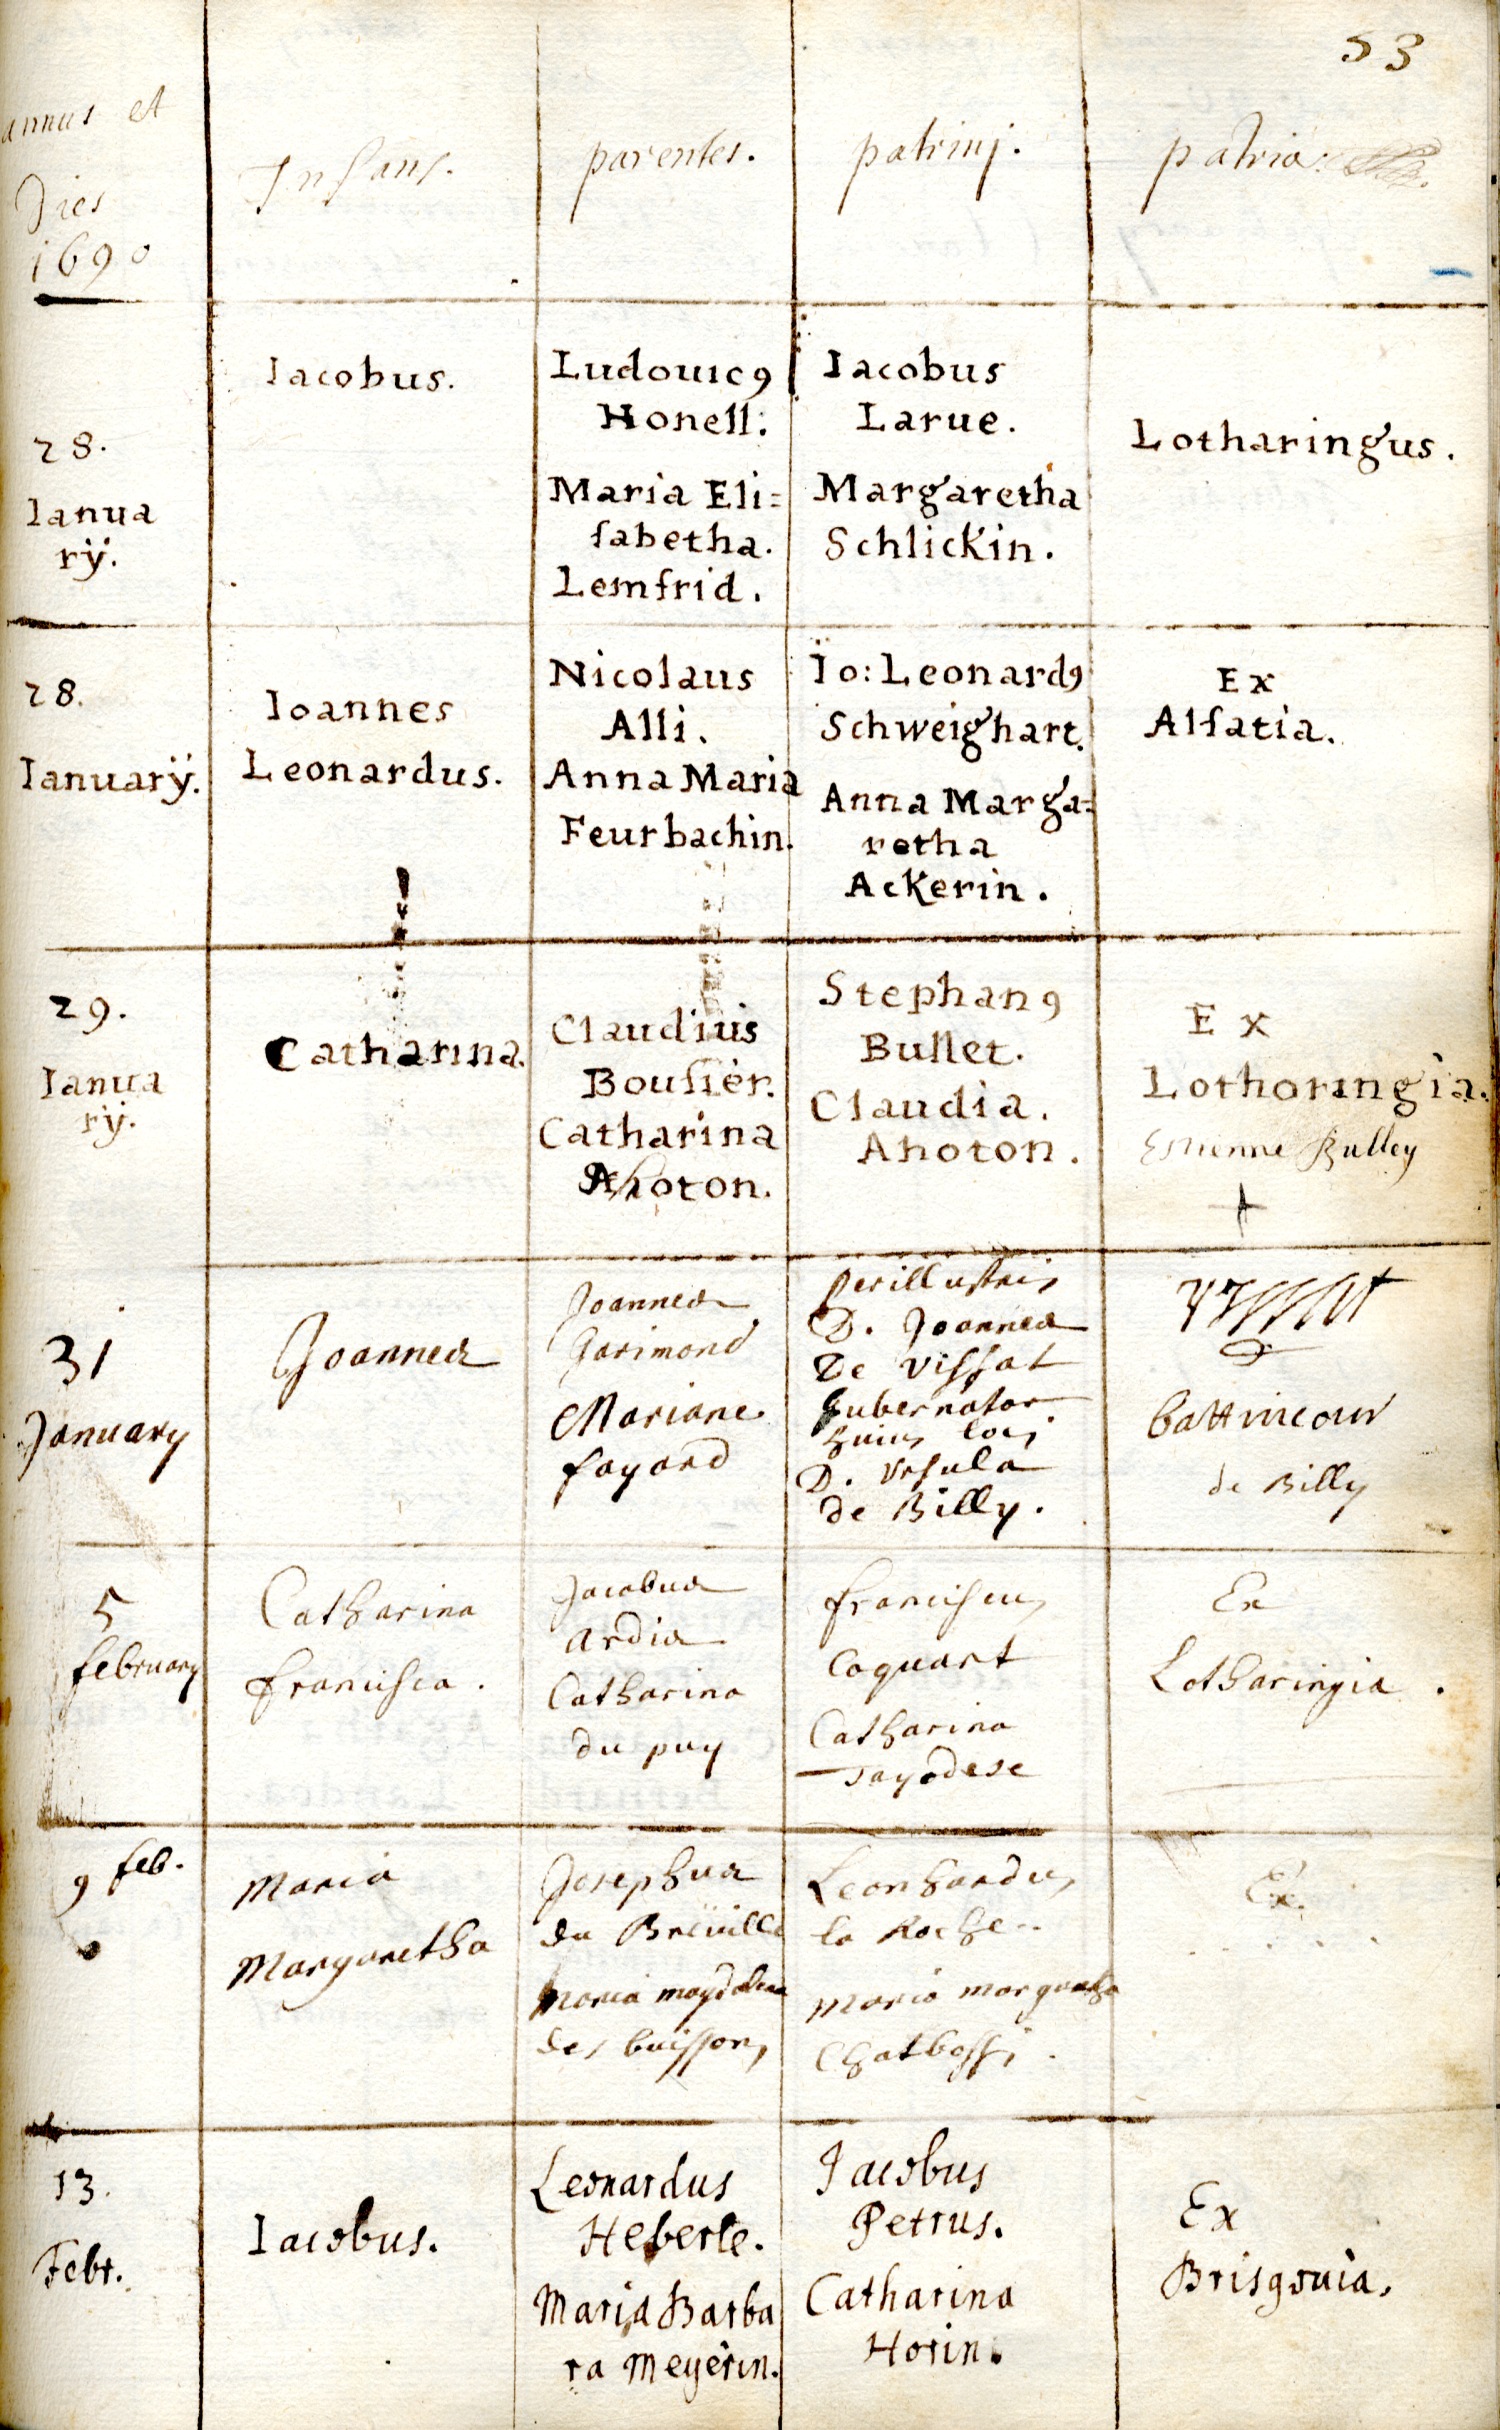 53
annus et
Dies
1690
Infans.
parentes.
patrinj.
patria:
28.
Ianua
rÿ.
Iacobus.
Ludouicꝰ
Honell.
Maria Eli=
sabetha.
Lemfrid.
Iacobus
Larue.
Margaretha
Schlickin.
Lotharingus.
28.
Ianuarÿ.
Ioannes
Leonardus.
Nicolaus
Alli.
Anna Maria
Feurbachin.
Io: Leonardꝰ
Schweighart.
Anna Marga=
retha
Ackerin.
Ex
Alsatia.
29.
Ianua
rÿ.
Catharina.
Claudius
Bousier.
Catharina
Ahoton.
Stephanꝰ
Bullet.
Claudia.
Ahoton.
Ex
Lothoringia.
Estienne Bulley
+
31
January
Joannes
Joannes
Garimond
Mariane
fayard
Perillustris
D. Joannes
De Vissat
Gubernator
huius loci
D. Vrsula
de Billy.
battincour
de Billy
5
february
Catharina
francisca.
Jacobus
ardia
Catharina
du puy
franciscus
Coquart
Catharina
Ex
Lotharingia.
9 feb.
Maria
Margaretha
Josephus
du Breuille
Maria magdalena
des buissons
Leonhardus
la Roche..
Maria margaretha
Ex.
. . . . .
13.
Febr.
Iacobus.
Leonardus
Heberle.
Maria Barba
ra Meyerin.
Jacobus
Petrus.
Catharina
Horin.
Ex
Brisgouia.